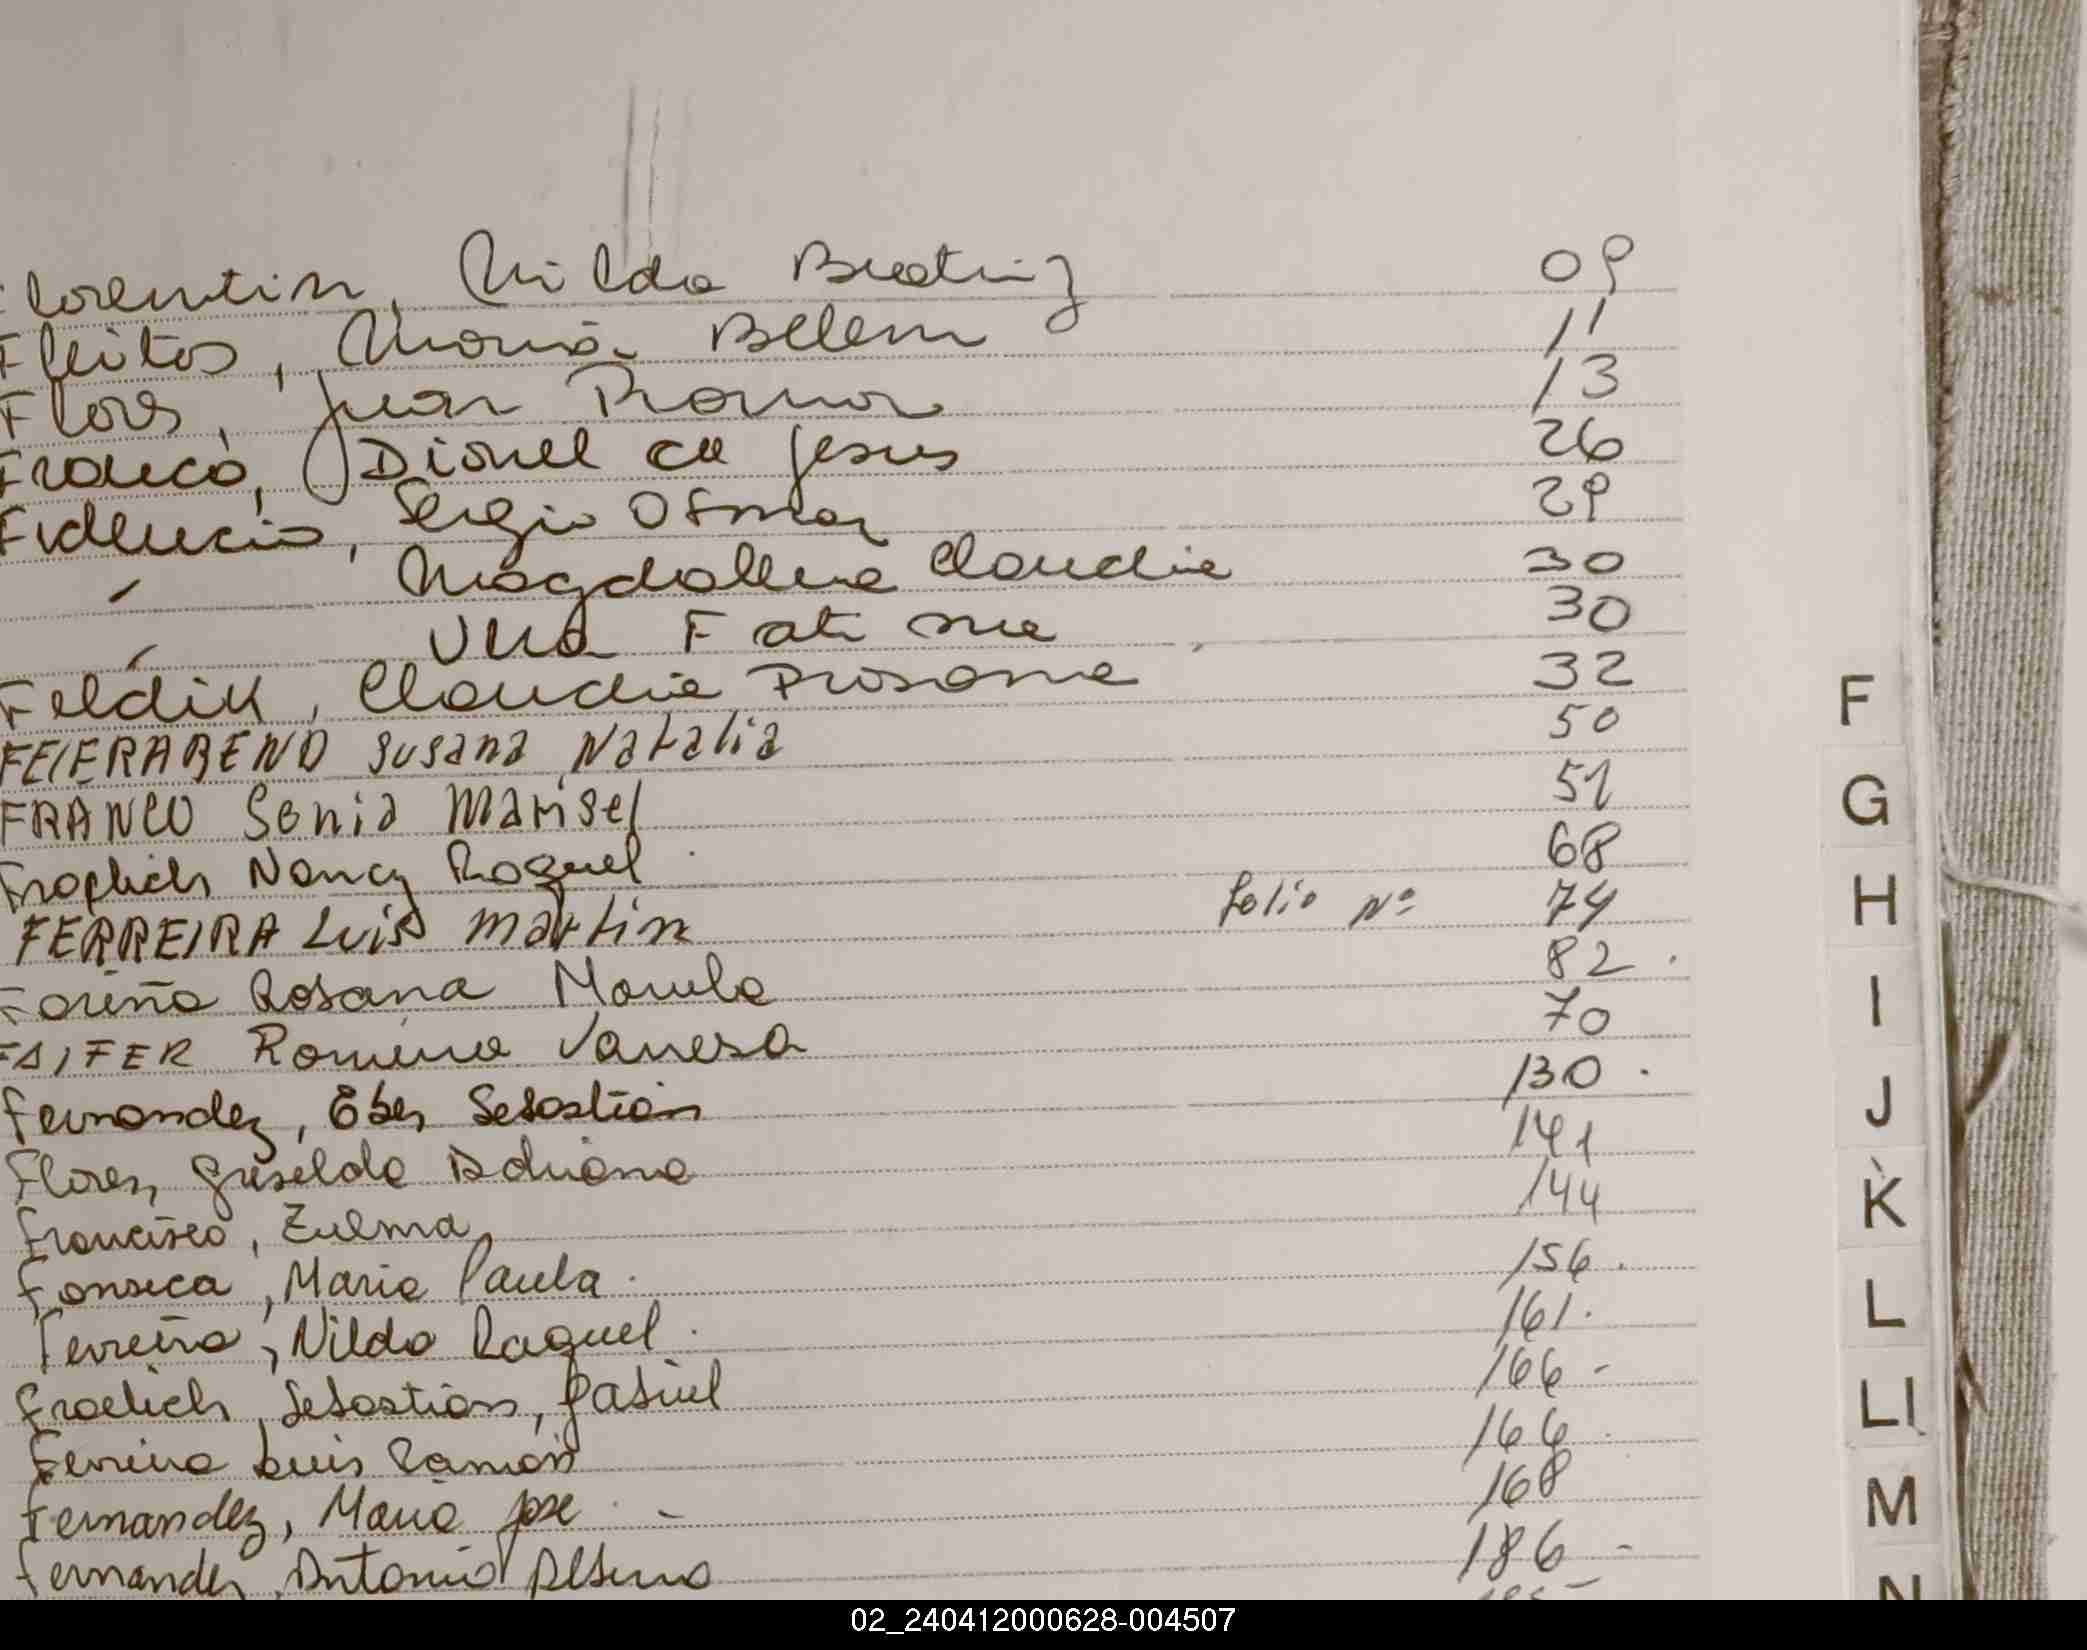 Florentin, Nilda Beatriz 09
Fleitas, Maria Belem 11
Flores, Juan Ramon 13
Franco, Dionel de Jesus 26
Fidelucio, Sergio Osmar 29
" Magdalena Claudia 30
" Vera Fatima 30
Feldik, Claudia Rosana 32
FEIERABEND Susana Natalia 50
FRANCO Sonia Marisel 51
Froehlich Nancy Raquel 68
FERREIRA Luis Martin folio Nº 74
Fariña Rosana Mariela 82
FAIFER Romina Vanesa 70
Fernandez, Eber Sebastián 130
Flores, Griselda Adriana 141
Francisco, Zulma 144
Fonseca, Maria Paula 156
Ferreira, Nilda Raquel 161
Froelich, Sebastián, Gabriel 166
Ferreira Luis Ramón 166
Fernandez, Maria Jose 168
Fernandez, Antonio Albino 186
F
G
H
I
J
K
L
Ll
M
N
02_240412000628-004507